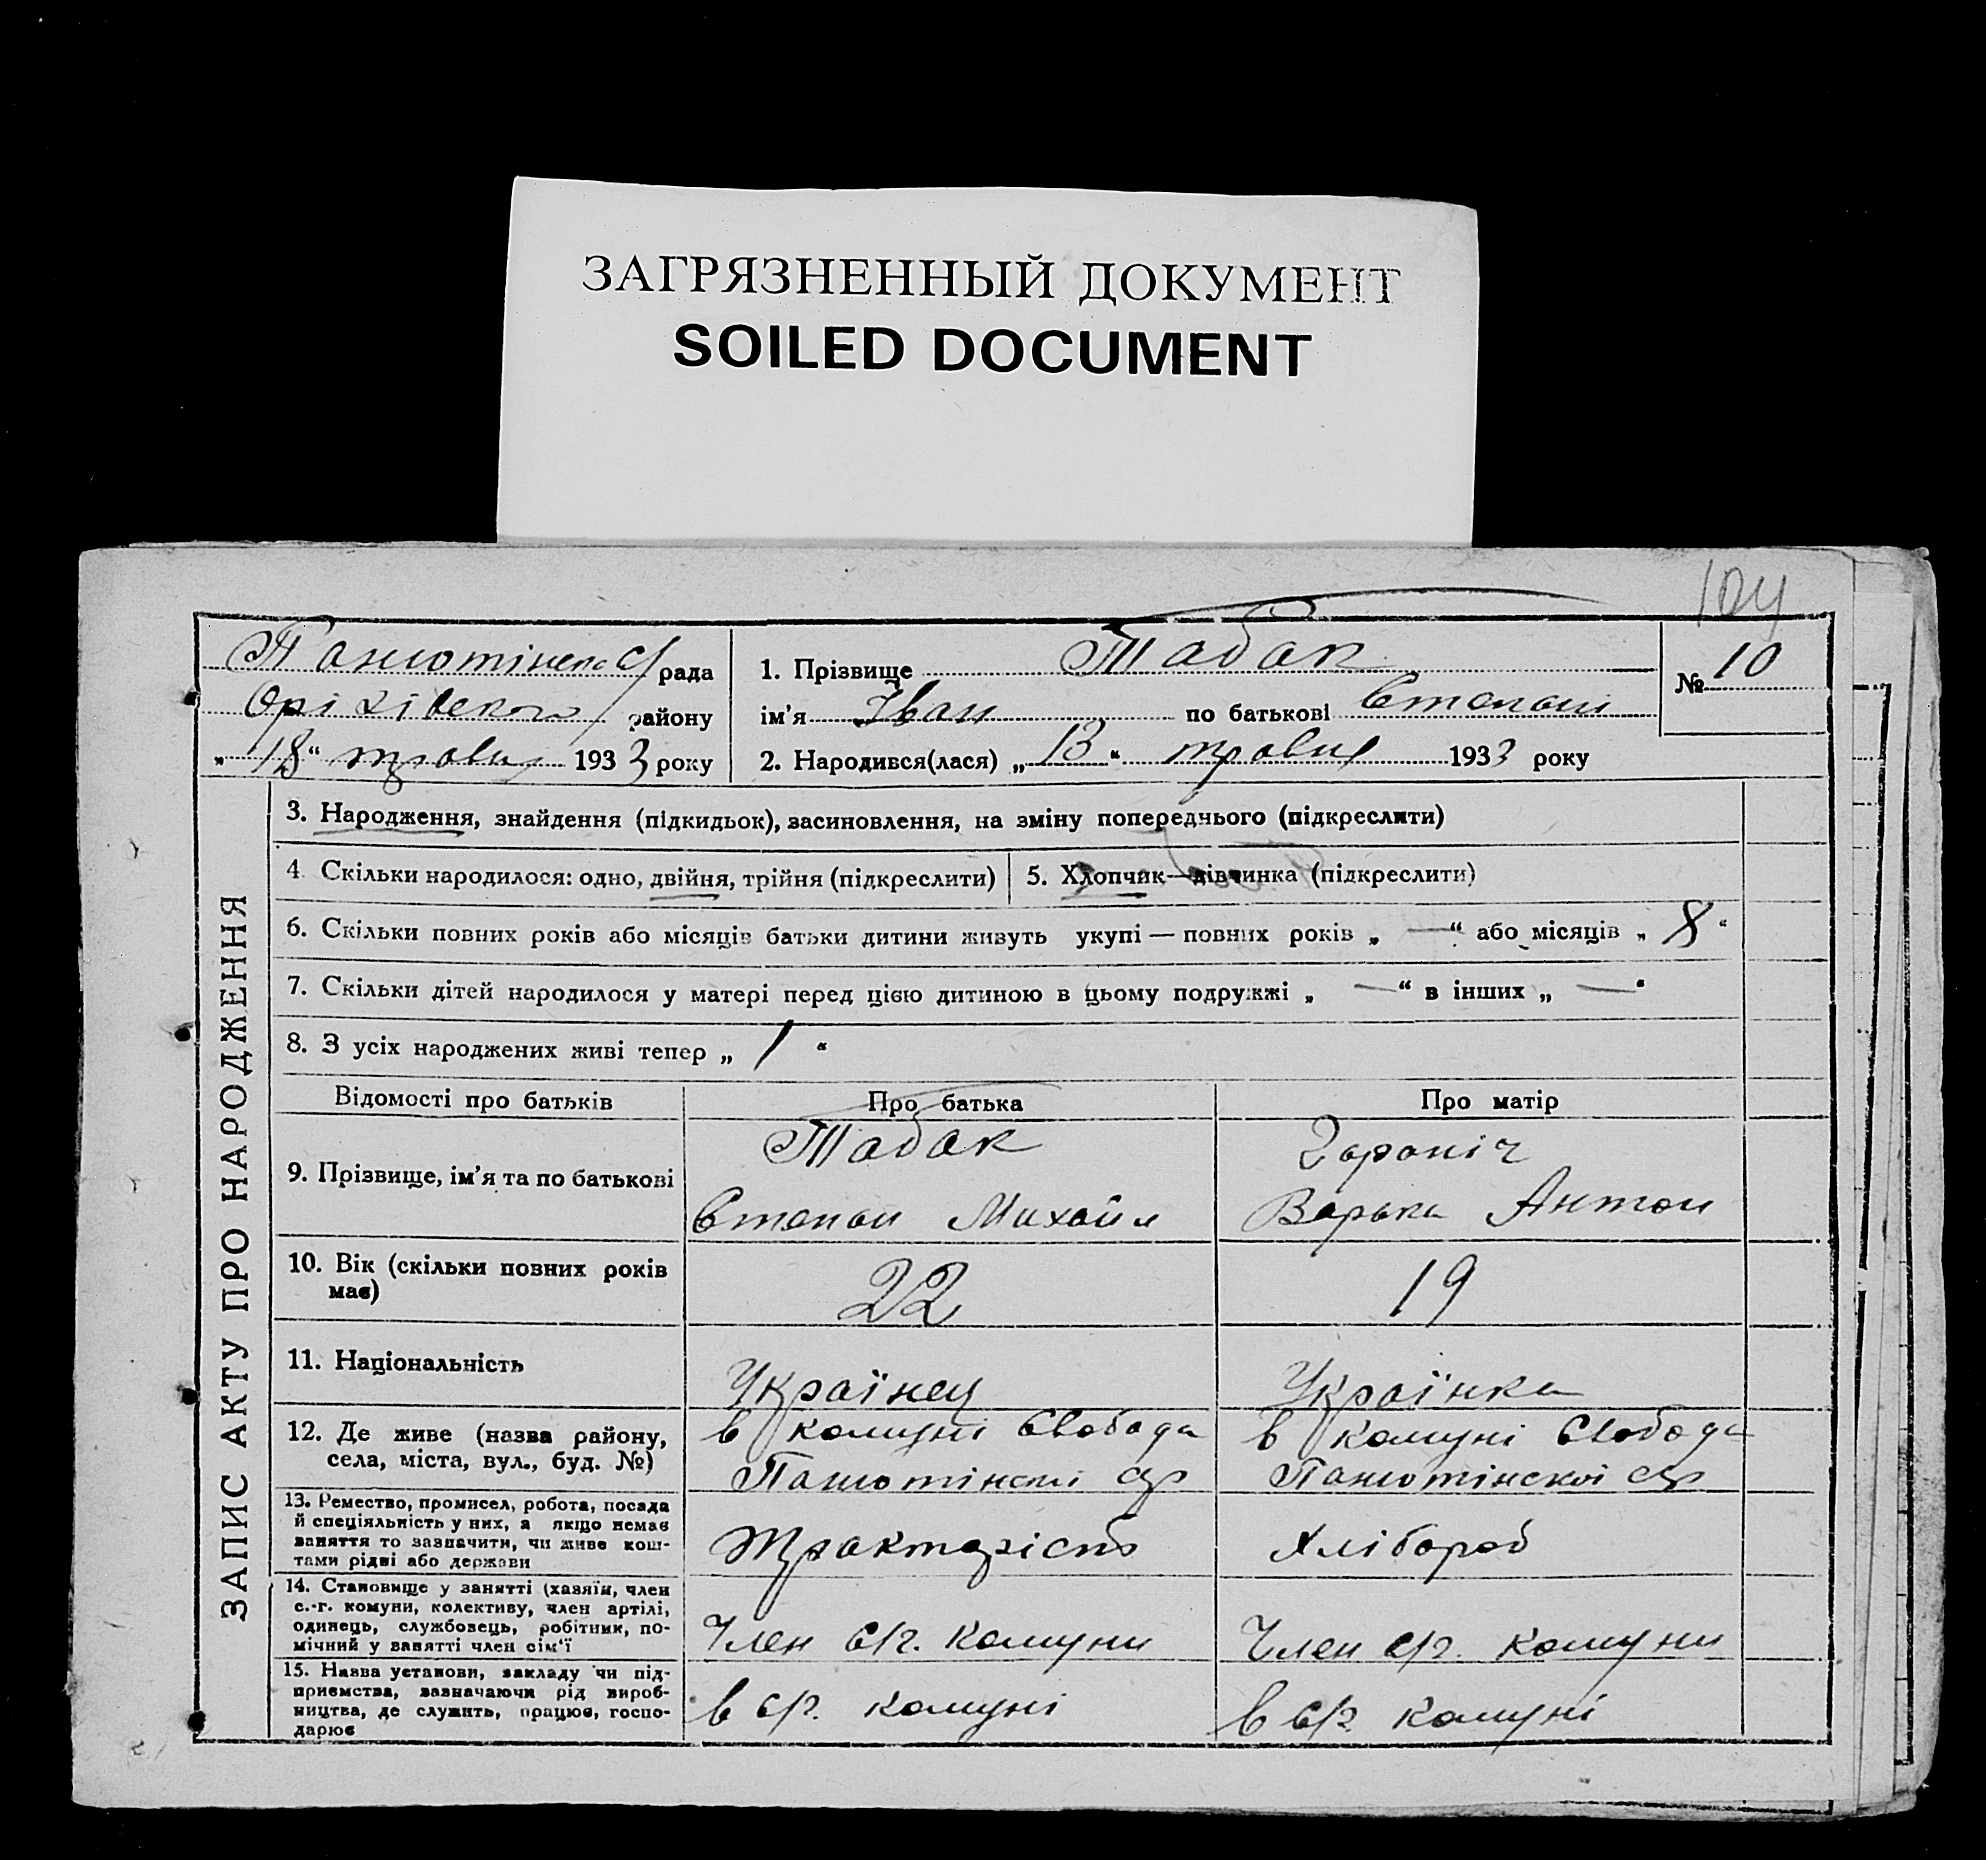 ЗАГРЯЗНЕННЫЙ ДОКУМЕНТ
SOILED DOCUMENT
104
рада
Оріхівського району
„18“ травня 1933 року
1. Прізвище Табак
ім’я Іван по батькові Степан
2. Народився(лася) „13“ травня 1933 року
№ 10
ЗАПИС АКТУ ПРО НАРОДЖЕННЯ
3. Народження, знайдення (підкидьок), засиновлення, на зміну попереднього (підкреслити)
4. Скільки народилося: одно, двійня, трійня (підкреслити)
5. Хлопчик—дівчинка (підкреслити)
6. Скільки повних років або місяців батьки дитини живуть укупі — повних років „ — “ або місяців „ 8 “
7. Скільки дітей народилося у матері перед цією дитиною в цьому подружжі „ — “ в інших „ — “
8. З усіх народжених живі тепер „ 1 “
Відомості про батьків
Про батька
Про матір
9. Прізвище, ім’я та по батькові
Табак
Степан Михайл
Варька Антон
10. Вік (скільки повних років
має)
22
19
11. Національність
Українец
Українка
12. Де живе (назва району,
села, міста, вул., буд. №)
в комуні Свобода
ср
в комуні Свобода
ср
13. Ремество, промисел, робота, посада
й спеціяльність у них, а якщо немає
заняття то зазначити, чи живе кош-
тами рідні або держави
Трактарість
Хлібороб
14. Становище у занятті (хазяїн, член
с.-г. комуни, колективу, член артілі,
одинець, службовець, робітник, по-
мічний у занятті член сім’ї
Член с/г. комуни
Член с/г. комуни
15. Назва установи, закладу чи під-
приємства, зазначаючи рід вироб-
ництва, де служить, працює, госпо-
дарює
в с/г. комуні
в с/г. комуні